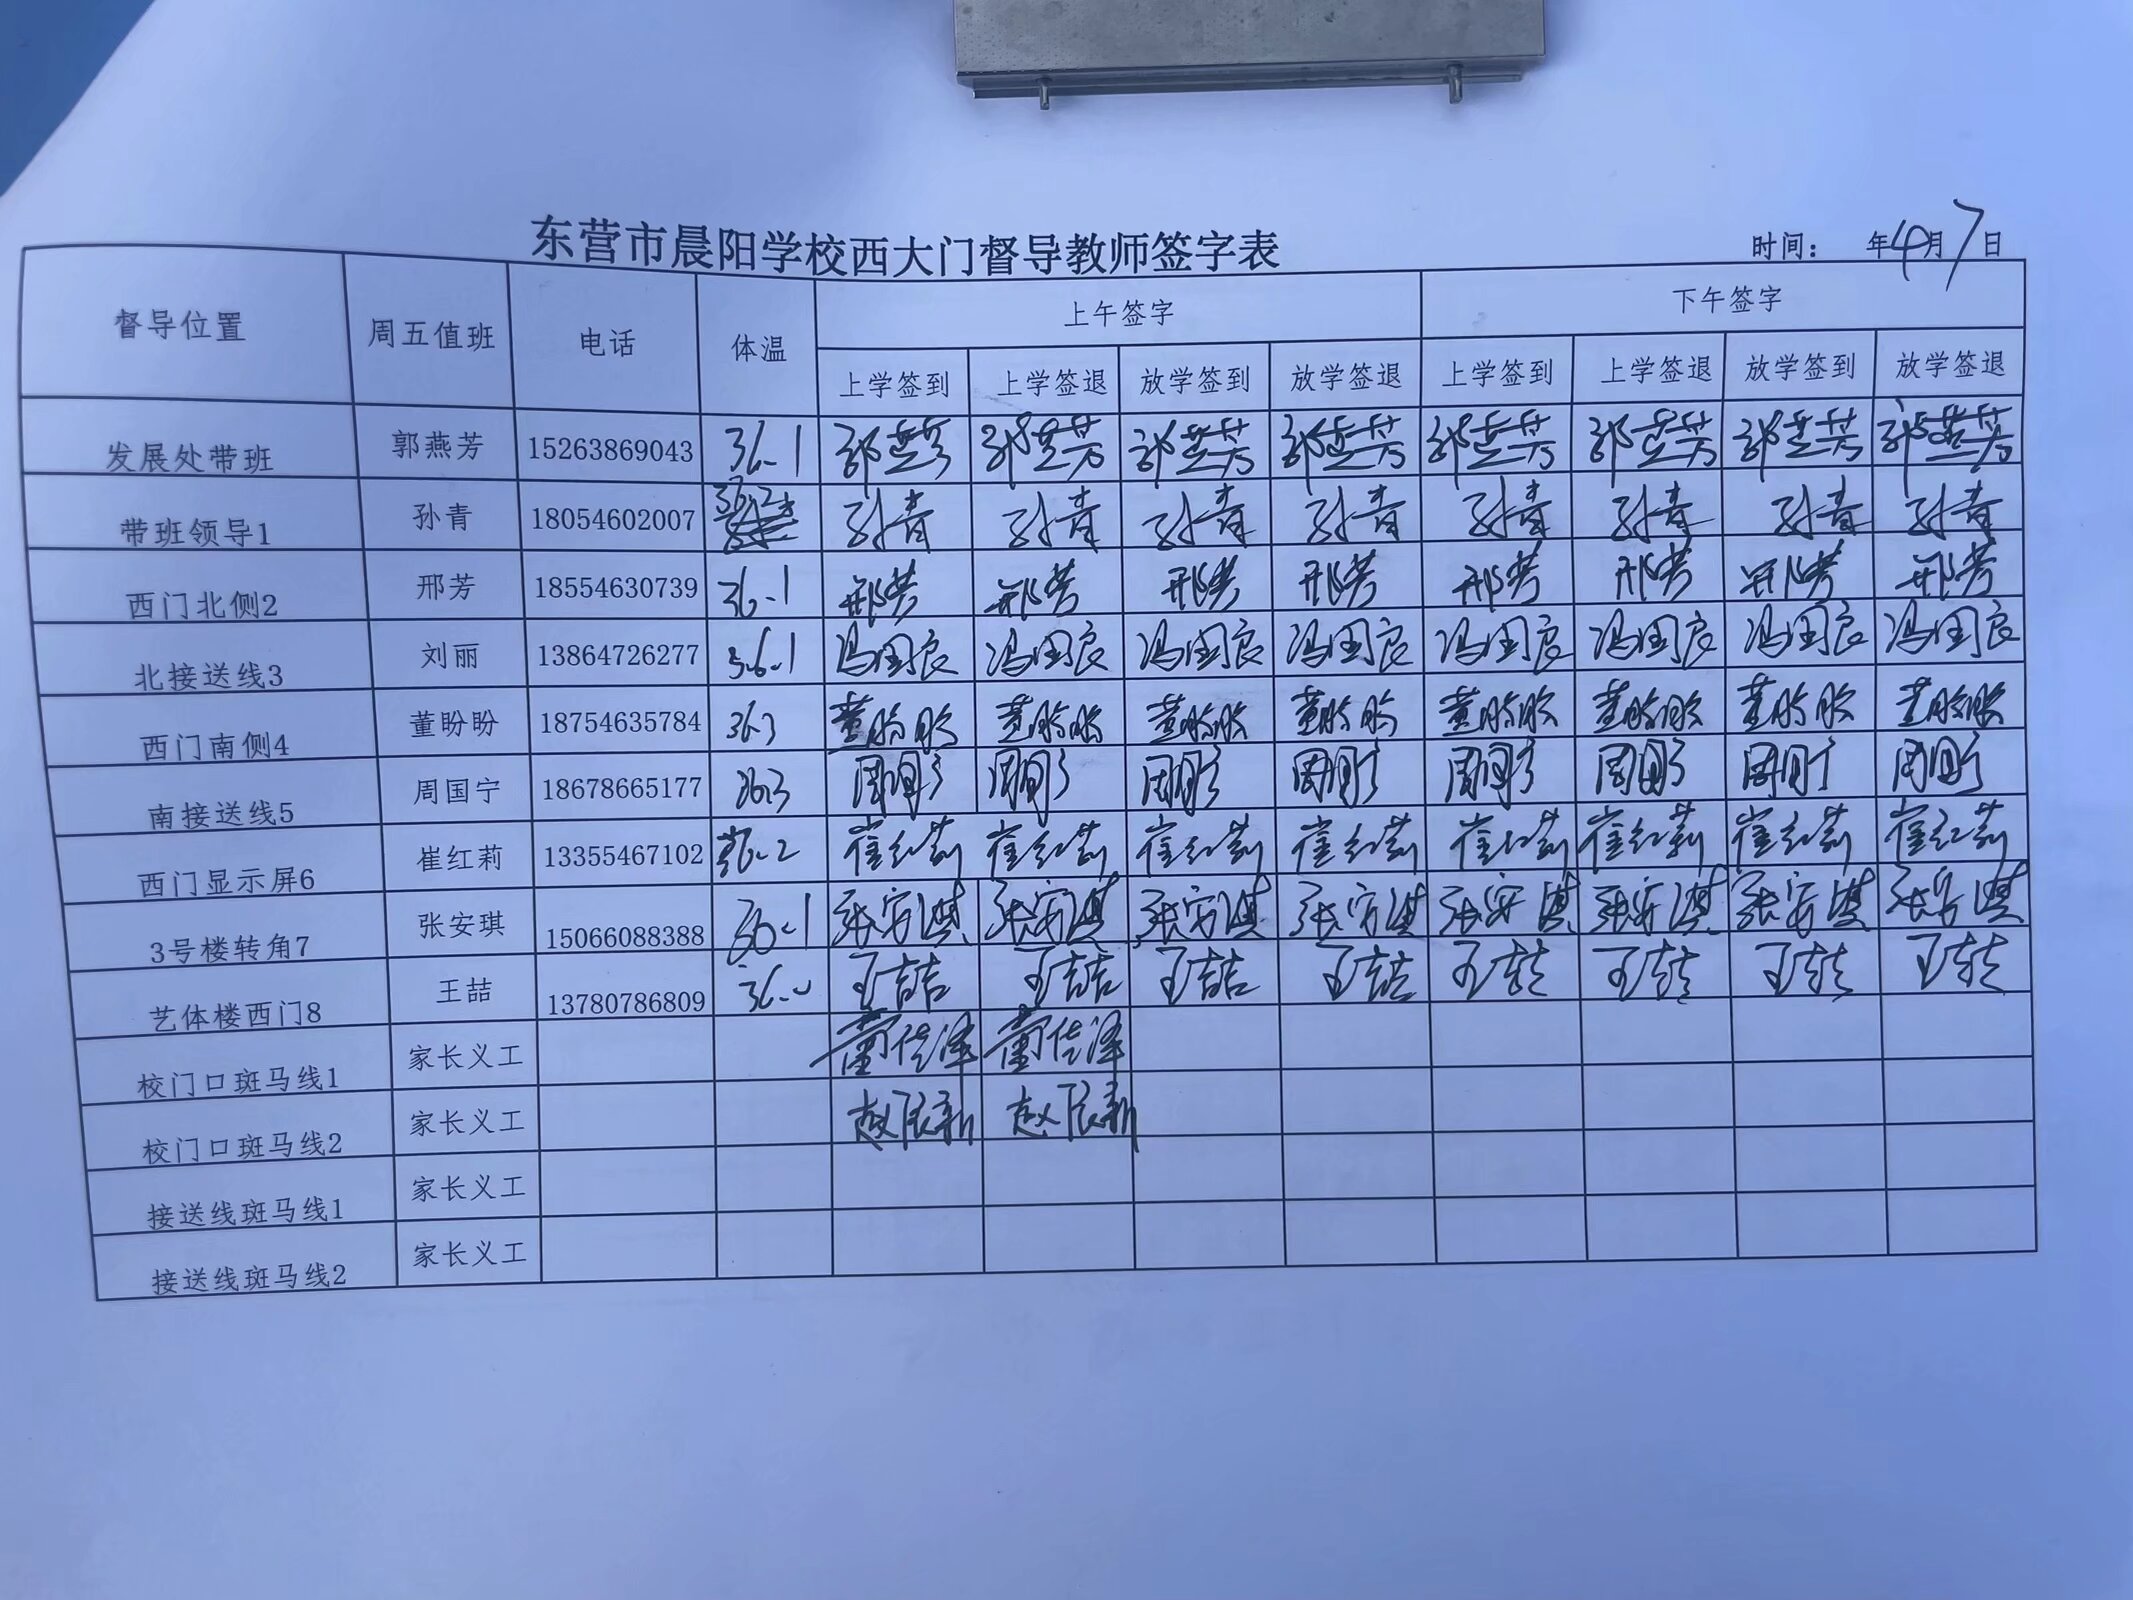 东营市晨阳学校西大门督导教师签字表
时间： 年4月7日
督导位置 周五值班 电话 体温 上午签字 下午签字
上学签到 上学签退 放学签到 放学签退 上学签到 上学签退 放学签到 放学签退
发展处带班 郭燕芳 15263869043 36.1 郭燕芳 郭燕芳 郭燕芳 郭燕芳 郭燕芳 郭燕芳 郭燕芳 郭燕芳
带班领导1 孙青 18054602007 36.2 孙青 孙青 孙青 孙青 孙青 孙青 孙青 孙青
西门北侧2 邢芳 18554630739 36.1 邢芳 邢芳 邢芳 邢芳 邢芳 邢芳 邢芳 邢芳
北接送线3 刘丽 13864726277 36.1 冯国良 冯国良 冯国良 冯国良 冯国良 冯国良 冯国良 冯国良
西门南侧4 董盼盼 18754635784 36.3 董盼盼 董盼盼 董盼盼 董盼盼 董盼盼 董盼盼 董盼盼 董盼盼
南接送线5 周国宁 18678665177 36.3 周国宁 周国宁 周国宁 周国宁 周国宁 周国宁 周国宁 周国宁
西门显示屏6 崔红莉 13355467102 36.2 崔红莉 崔红莉 崔红莉 崔红莉 崔红莉 崔红莉 崔红莉 崔红莉
3号楼转角7 张安琪 15066088388 36.1 张安琪 张安琪 张安琪 张安琪 张安琪 张安琪 张安琪 张安琪
艺体楼西门8 王喆 13780786809 36.0 王喆 王喆 王喆 王喆 王喆 王喆 王喆 王喆
校门口斑马线1 家长义工 董佳泽 董佳泽
校门口斑马线2 家长义工
接送线斑马线1 家长义工
接送线斑马线2 家长义工